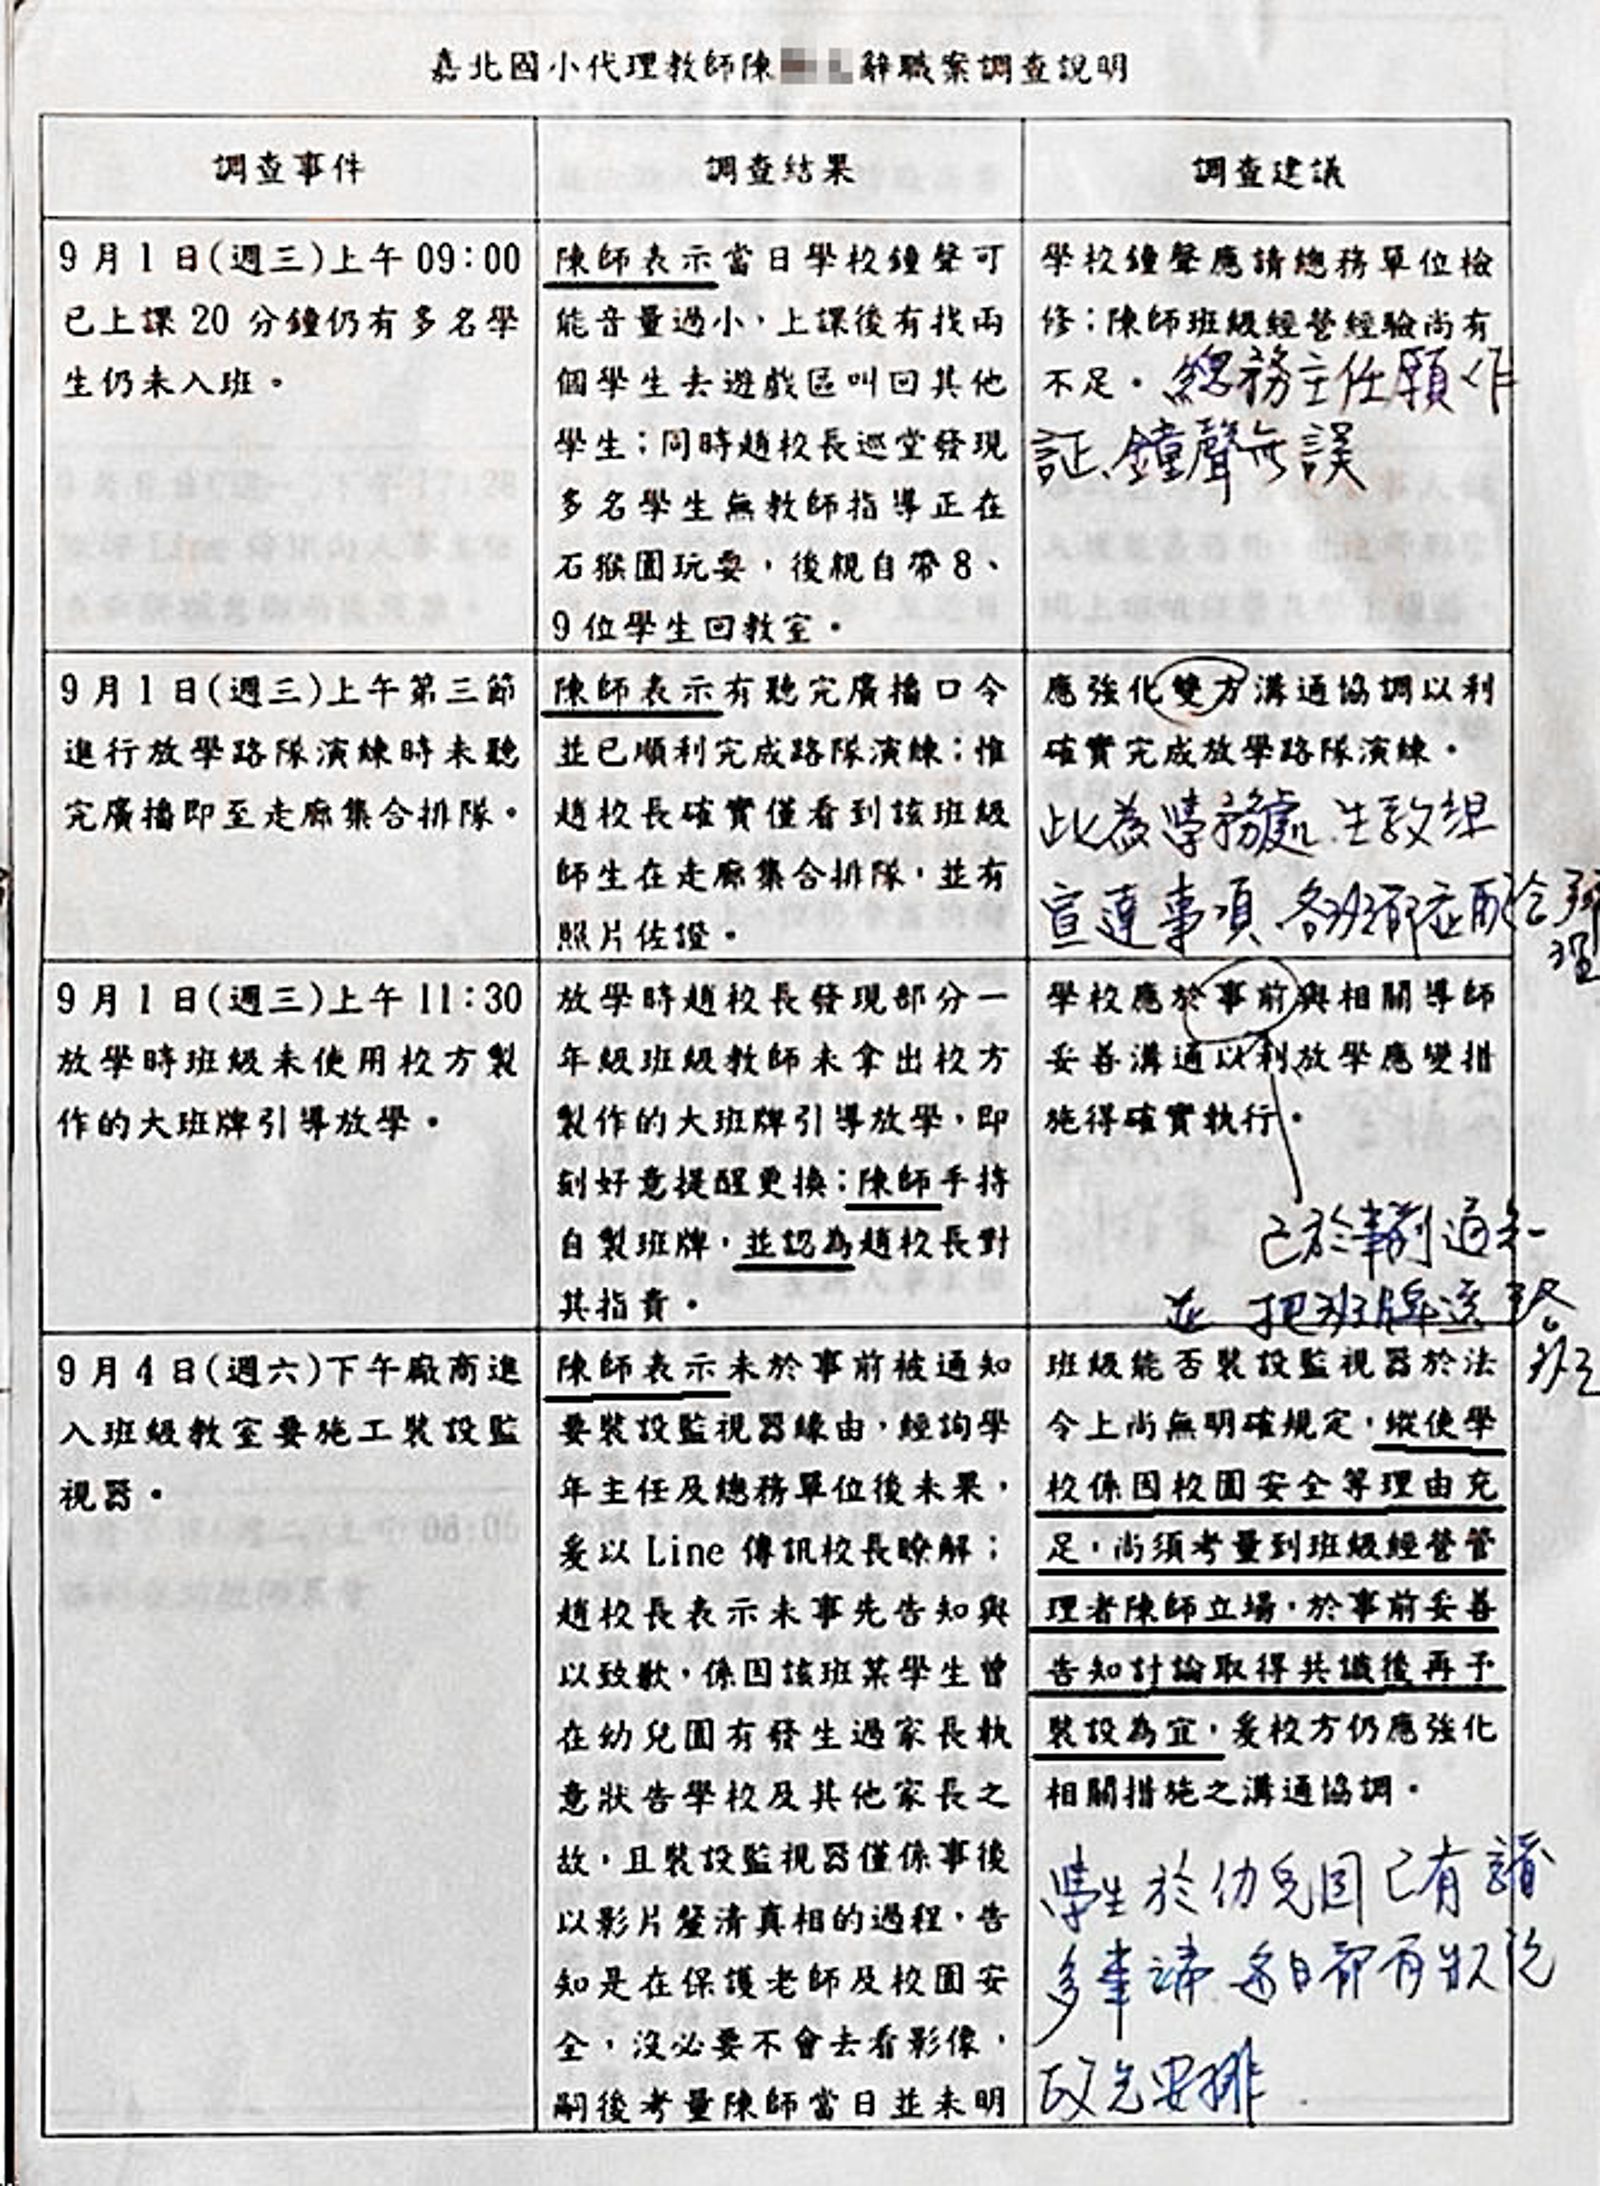 嘉北國小代理教師陳 辭職案調查說明
調查事件
調查結果
調查建議
9月1日(週三)上午09:00
已上課20分鐘仍有多名學
生仍未入班。
陳師表示當日學校鐘聲可
能音量過小，上課後有找兩
個學生去遊戲區叫回其他
學生；同時趙校長巡堂發現
多名學生無教師指導正在
石猴園玩耍，後親自帶8、
9位學生回教室。
學校鐘聲應請總務單位檢
修；陳師班級經營經驗尚有
不足。
總務主任願作
証、鐘聲無誤
9月1日(週三)上午第三節
進行放學路隊演練時未聽
完廣播即至走廊集合排隊。
陳師表示有聽完廣播口令
並已順利完成路隊演練；惟
趙校長確實僅看到該班級
師生在走廊集合排隊，並有
照片佐證。
應強化雙方溝通協調以利
確實完成放學路隊演練。
此為學務處、生教組
宣達事項 各班都應配合辦
理
9月1日(週三)上午11:30
放學時班級未使用校方製
作的大班牌引導放學。
放學時趙校長發現部分一
年級班級教師未拿出校方
製作的大班牌引導放學，即
刻好意提醒更換；陳師手持
自製班牌，並認為趙校長對
其指責。
學校應於事前與相關導師
妥善溝通以利放學應變措
施得確實執行。
已於事前通知
並 把班牌送給
班
9月4日(週六)下午廠商進
入班級教室要施工裝設監
視器。
陳師表示未於事前被通知
要裝設監視器緣由，經詢學
年主任及總務單位後未果，
爰以Line傳訊校長瞭解；
趙校長表示未事先告知與
以致歉，係因該班某學生曾
在幼兒園有發生過家長執
意狀告學校及其他家長之
故，且裝設監視器僅係事後
以影片釐清真相的過程，告
知是在保護老師及校園安
全，沒必要不會去看影像，
嗣後考量陳師當日並未明
班級能否裝設監視器於法
令上尚無明確規定，縱使學
校係因校園安全等理由充
足，尚須考量到班級經營管
理者陳師立場，於事前妥善
告知討論取得共識後再予
裝設為宜，爰校方仍應強化
相關措施之溝通協調。
學生於幼兒園已有諸
多事
安排